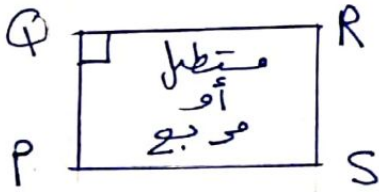 Q R
مستطيل
أو
مربع
P S